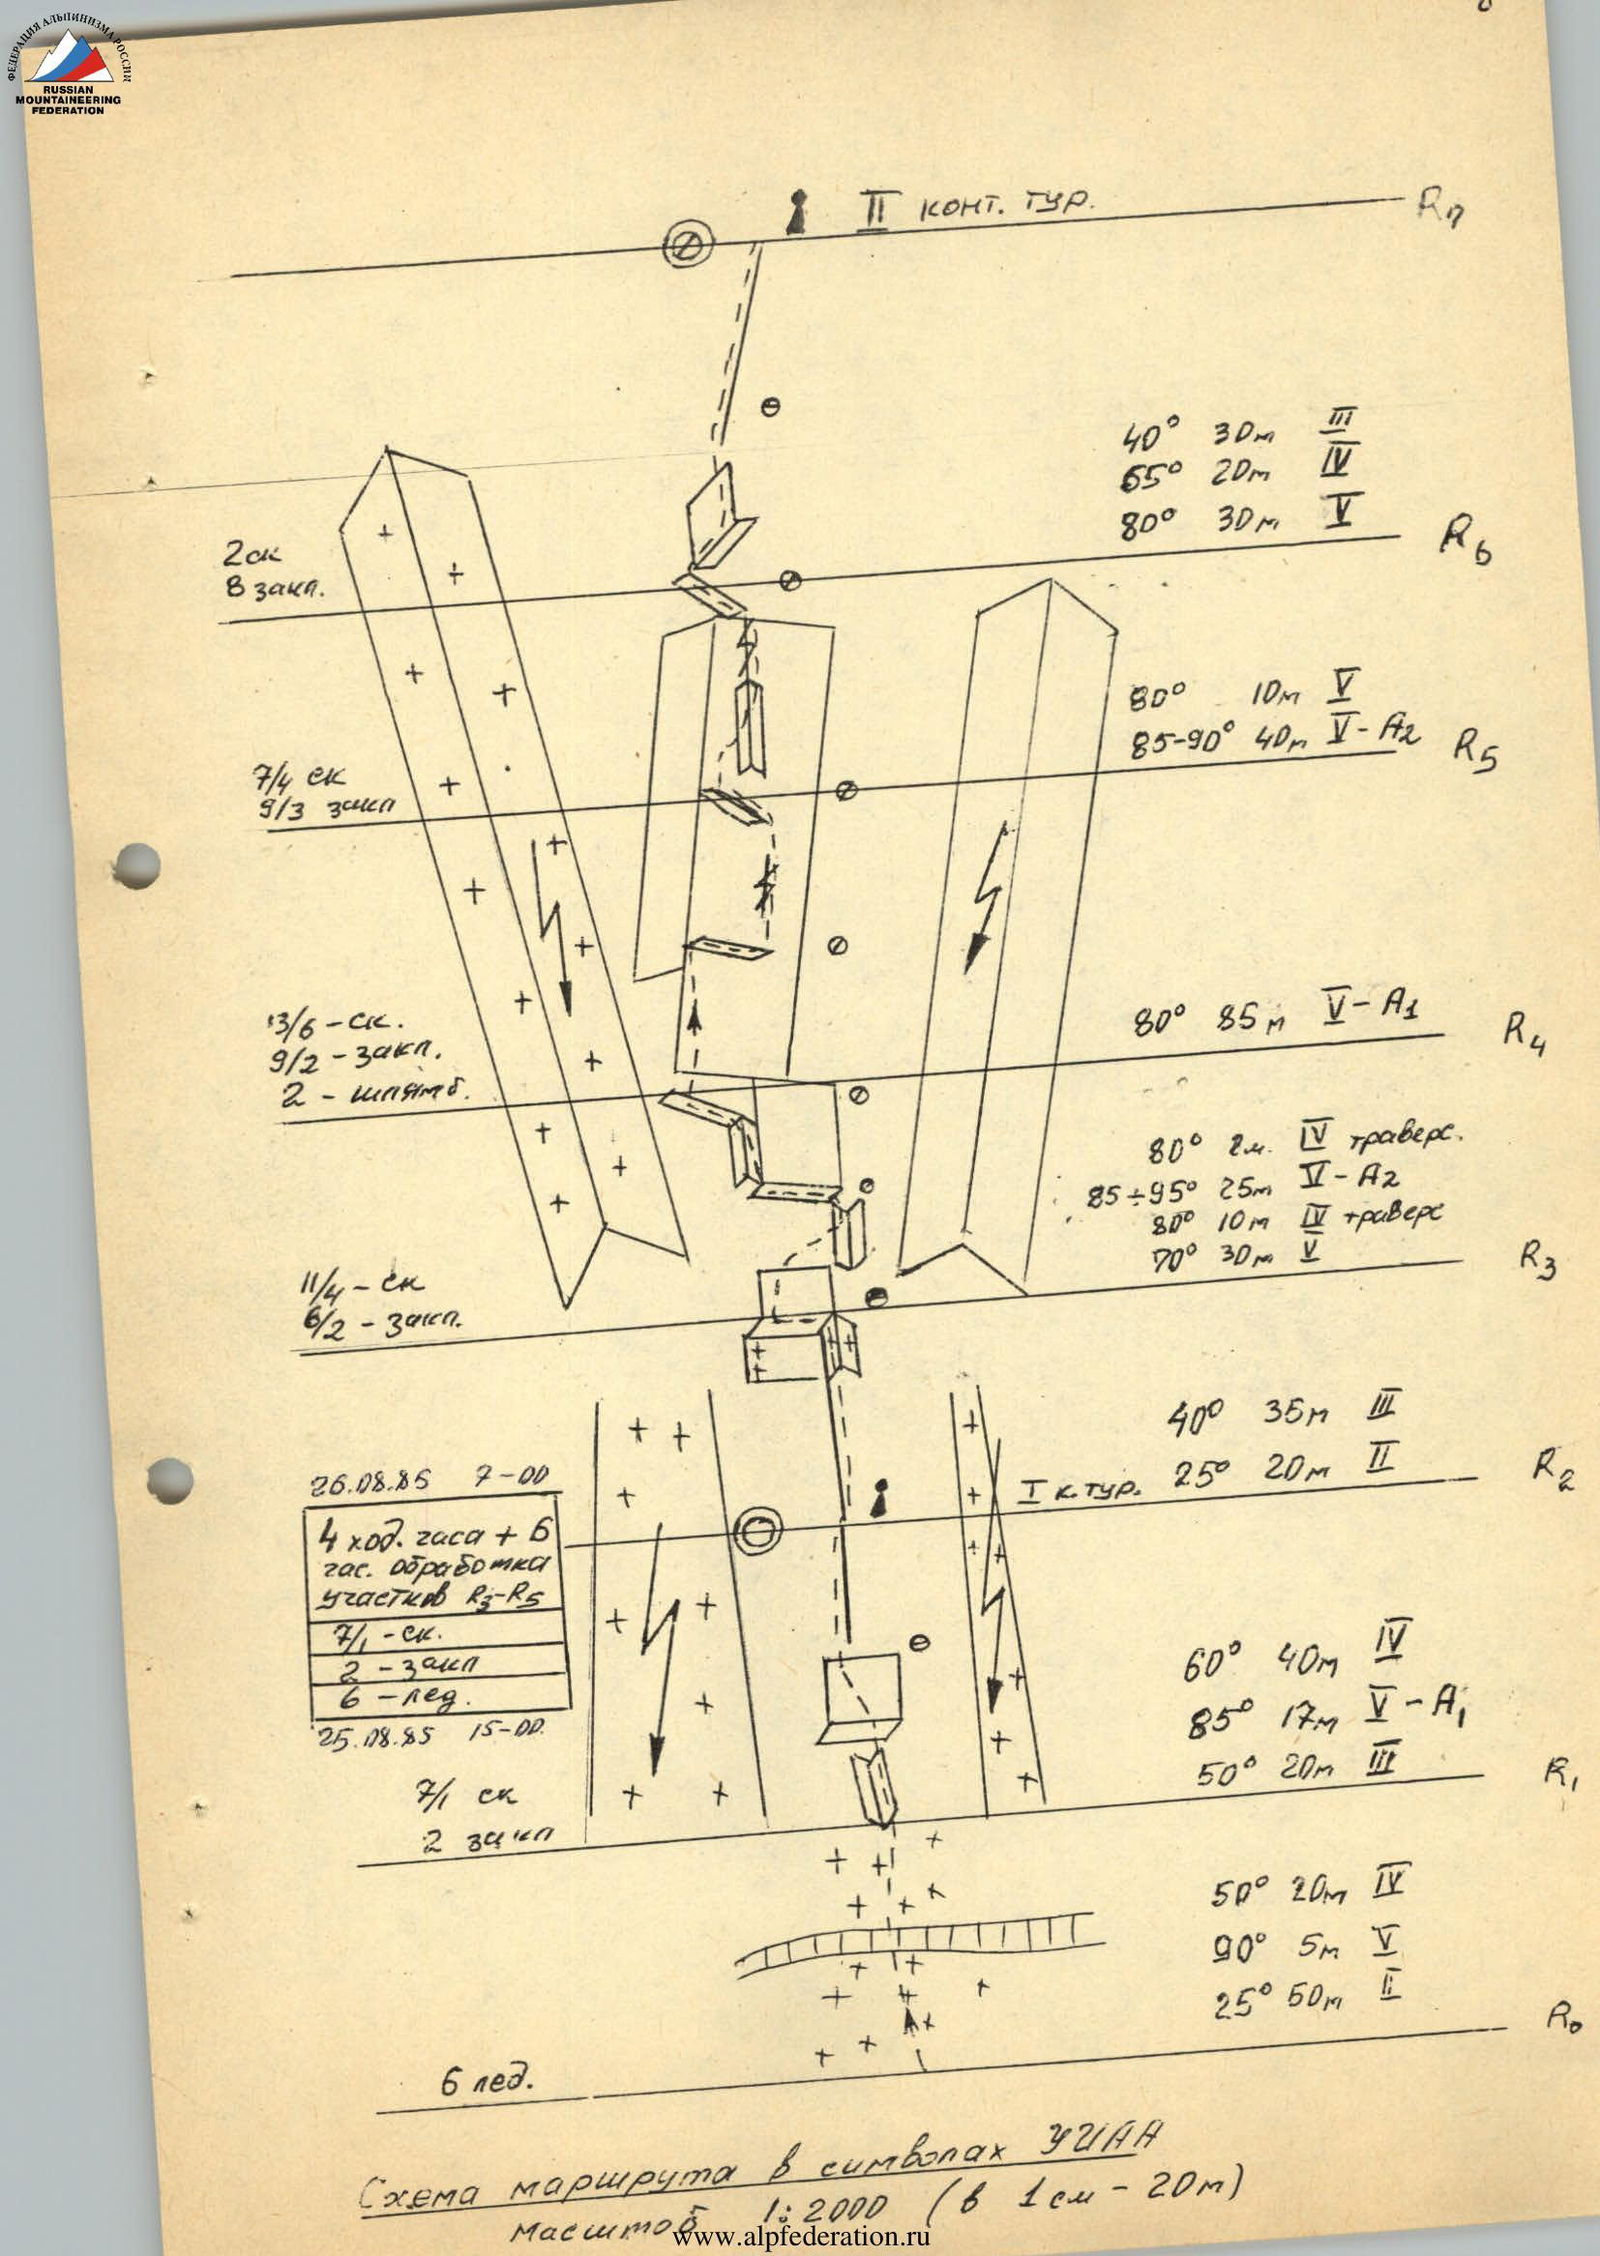 ФЕДЕРАЦИЯ АЛЬПИНИЗМА РОССИИ
RUSSIAN
MOUNTAINEERING
FEDERATION
II конт. тур.
R7
40° 30м III
65° 20м IV
80° 30м V
R6
2ск
8 закл.
80° 10м V
85-90° 40м V-A2
R5
7/4 ск
9/3 закл
80° 85м V-A1
R4
13/6-ск.
9/2-закл.
2-шлямб.
80° 2м. IV траверс.
85÷95° 25м V-A2
80° 10м IV траверс
70° 30м V
R3
11/4-ск
6/2-закл.
40° 35м III
25° 20м II
R2
I к.тур.
26.08.85 7-00
4 ход. часа + 6
час. обработка
участков R3-R5
7/1-ск.
2-закл
6-лед.
25.08.85 15-00.
60° 40м IV
85° 17м V-A1
50° 20м III
R1
7/1 ск
2 закл
50° 20м IV
90° 5м V
25° 50м II
R0
6 лед.
Схема маршрута в символах УИАА
масштаб 1:2000 (в 1см-20м)
www.alpfederation.ru